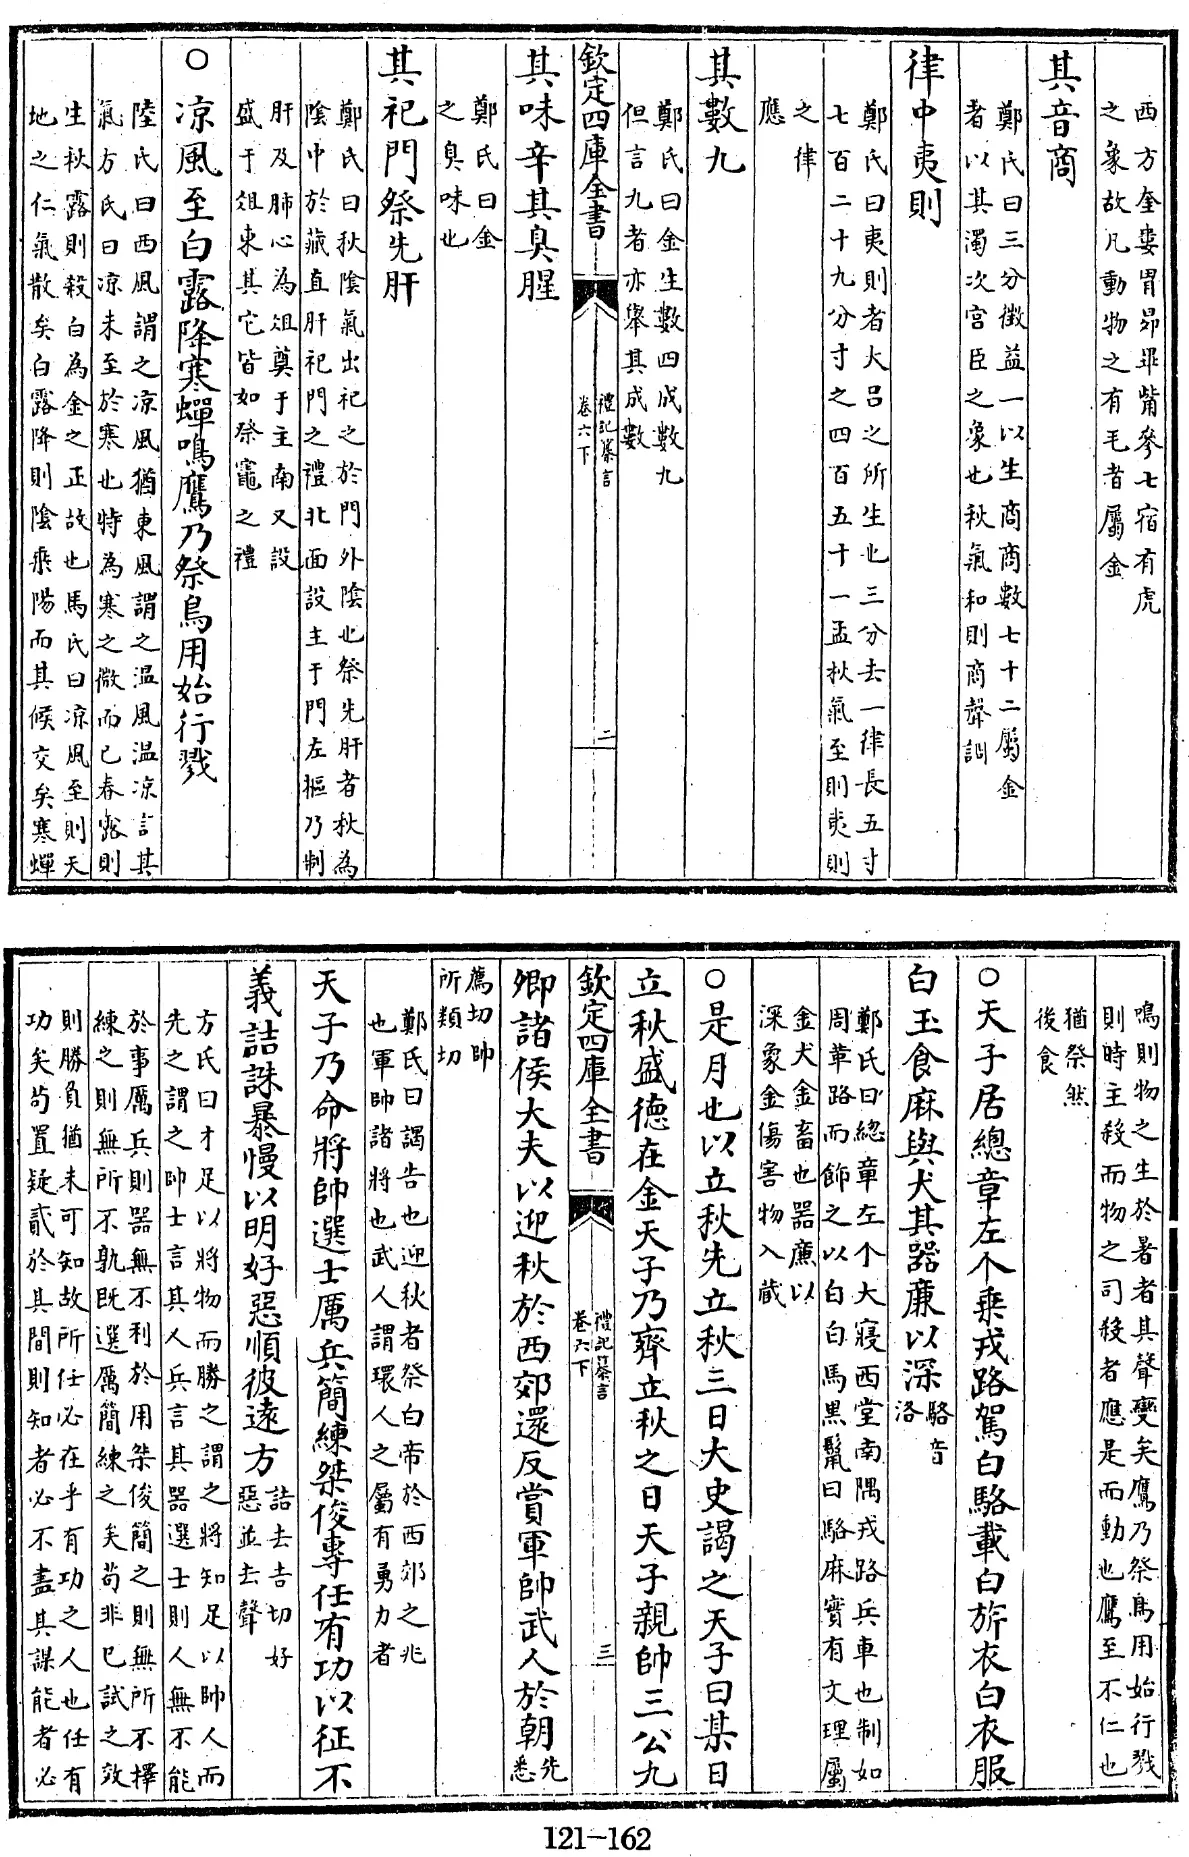 西方奎婁胃昴畢觜參七宿有虎
之象故凡動物之有毛者屬金
其音商
鄭氏曰三分徵益一以生商商數七十二屬金
者以其濁次宫臣之象也秋氣和則商聲調
律中夷則
鄭氏曰夷則者大吕之所生也三分去一律長五寸
七百二十九分寸之四百五十一孟秋氣至則夷則
之律
應
其數九
鄭氏曰金生數四成數九
但言九者亦舉其成數
欽定四庫全書
禮記纂言
卷六下
二
其味辛其臭腥
鄭氏曰金
之臭味也
其祀門祭先肝
鄭氏曰秋陰氣出祀之於門外陰也祭先肝者秋為
陰中於藏直肝祀門之禮北面設主于門左樞乃制
肝及肺心為俎奠于主南又設
盛于俎東其它皆如祭竈之禮
○涼風至白露降寒蟬鳴鷹乃祭鳥用始行戮
陸氏曰西風謂之凉風猶東風謂之温風温凉言其
氣方氏曰凉未至於寒也特為寒之微而已春露則
生秋露則殺白為金之正故也馬氏曰凉風至則天
地之仁氣散矣白露降則陰乗陽而其候交矣寒蟬
鳴則物之生於暑者其聲變矣鷹乃祭鳥用始行戮
則時主殺而物之司殺者應是而動也鷹至不仁也
猶祭然
後食
○天子居總章左个乗戎路駕白駱載白旂衣白衣服
白玉食麻與犬其器廉以深
駱音
洛
鄭氏曰總章左个大寢西堂南隅戎路兵車也制如
周革路而飾之以白白馬黑鬛曰駱麻實有文理屬
金犬金畜也器廉以
深象金傷害物入藏
○是月也以立秋先立秋三日大史謁之天子曰某日
立秋盛德在金天子乃齊立秋之日天子親帥三公九
欽定四庫全書
禮記纂言
卷六下
三
卿諸侯大夫以迎秋於西郊還反賞軍帥武人於朝
先
悉
薦切帥
所類切
鄭氏曰謁告也迎秋者祭白帝於西郊之兆
也軍帥諸將也武人謂環人之屬有勇力者
天子乃命將帥選士厲兵簡練桀俊專任有功以征不
義詰誅暴慢以明好惡順彼遠方
詰去吉切好
惡並去聲
方氏曰才足以將物而勝之謂之將知足以帥人而
先之謂之帥士言其人兵言其器選士則人無不能
於事厲兵則器無不利於用桀俊簡之則無所不擇
練之則無所不孰既選厲簡練之矣苟非已試之效
則勝負猶未可知故所任必在乎有功之人也任有
功矣苟置疑貳於其間則知者必不盡其謀能者必
121-162